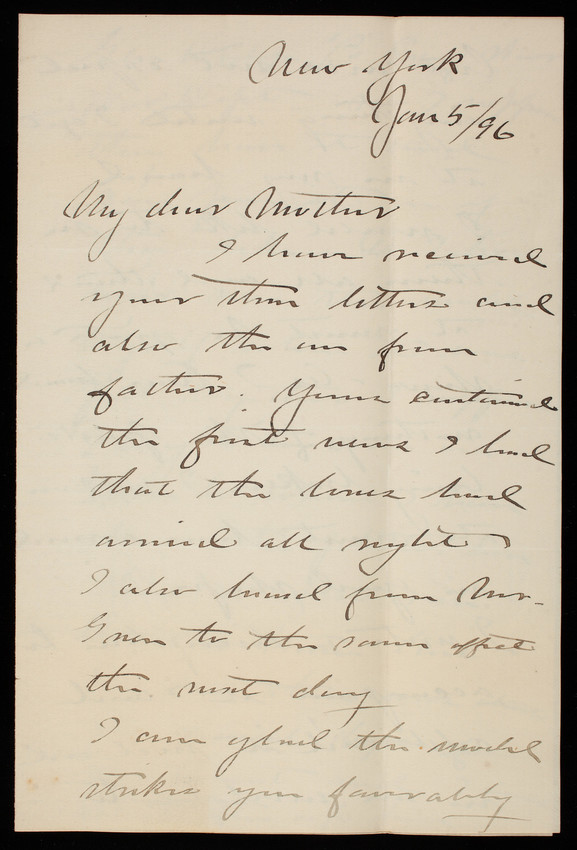 New York
Jan 5/96
My dear Mother
I have received
your three letters and
also the one from
father. Yours contained
the first news I had
that the boxes had
arrived all right
I also heard from Mr.
to the same effect
the next day
I am glad the model
strikes you favorably